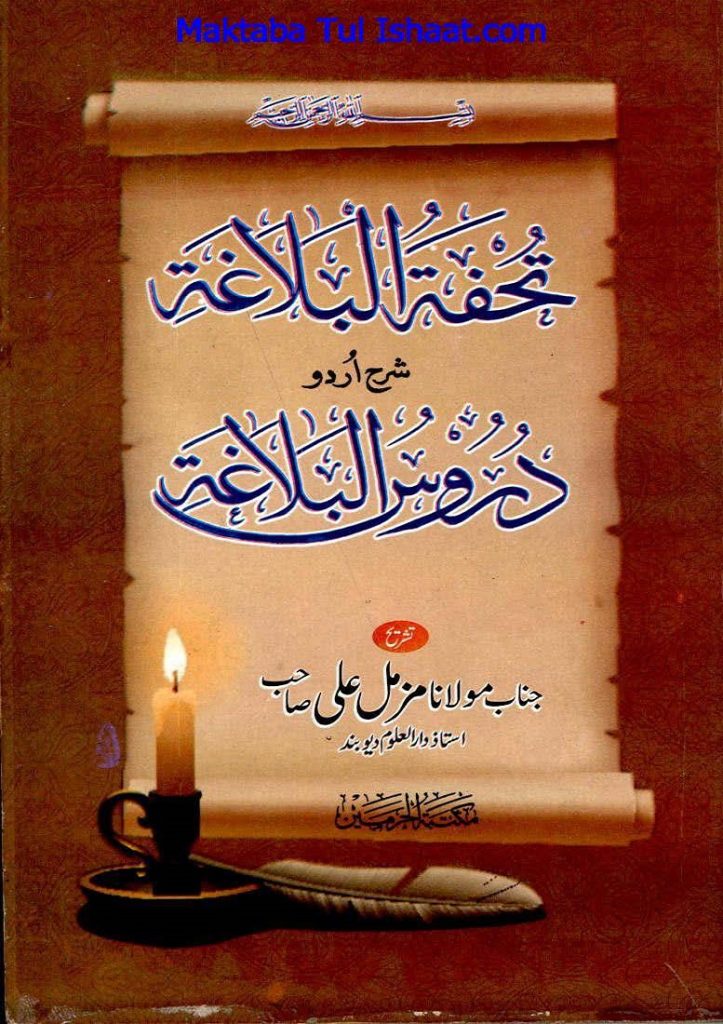 Maktaba Tul Ishaat.com
بسم الله الرحمن الرحيم
تُحْفَةُ الْبَلَاغَةِ
شرح اُردو
دُرُوْسُ الْبَلَاغَةِ
تشریح
جناب مولانا مزمل علی صاحب
استاذ دارالعلوم دیوبند
مکتبۃ الحرمین